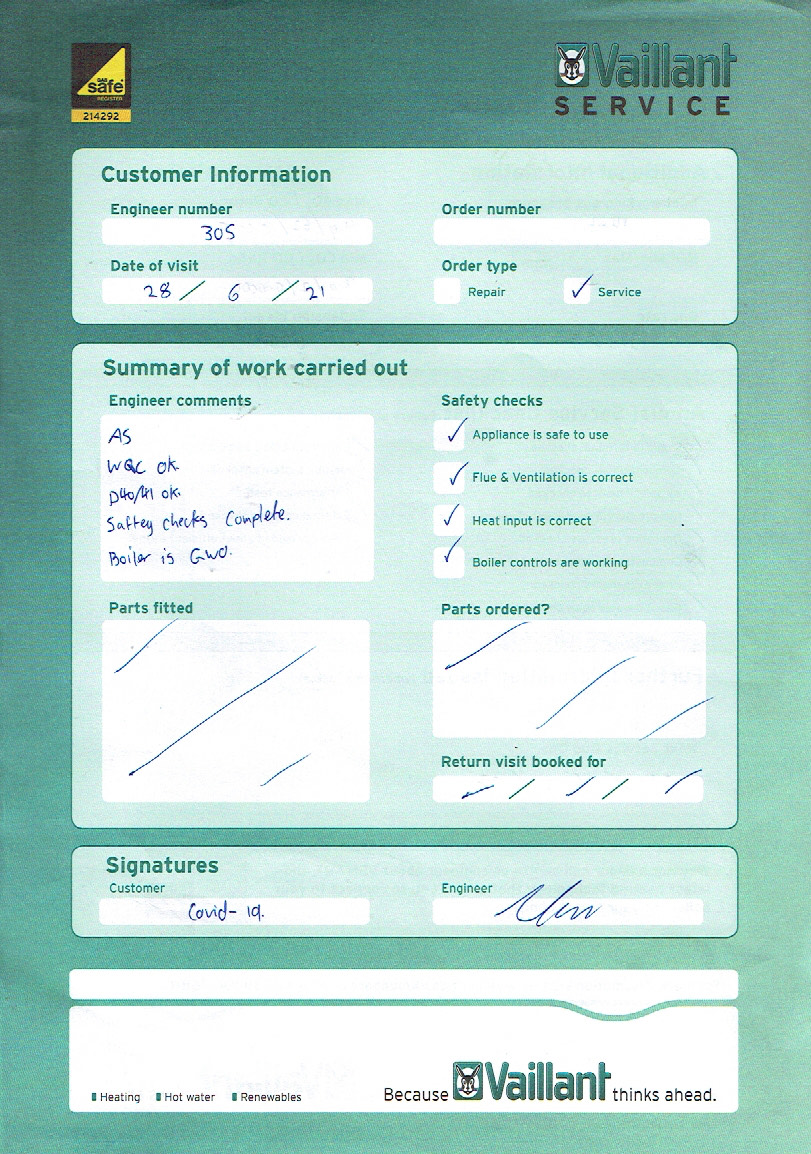 GAS
safe
REGISTER
214292
Vaillant
SERVICE
Customer Information
Engineer number
305
Order number
Date of visit
28 / 6 / 21
Order type
Repair
✓ Service
Summary of work carried out
Engineer comments
AS
WQC OK
D40/41 OK.
Saftey checks Complete.
Boiler is GWO.
Safety checks
✓ Appliance is safe to use
✓ Flue & Ventilation is correct
✓ Heat input is correct
✓ Boiler controls are working
Parts fitted
Parts ordered?
Return visit booked for
/ /
Signatures
Customer
Covid-19.
Engineer
Heating Hot water Renewables
Because Vaillant thinks ahead.